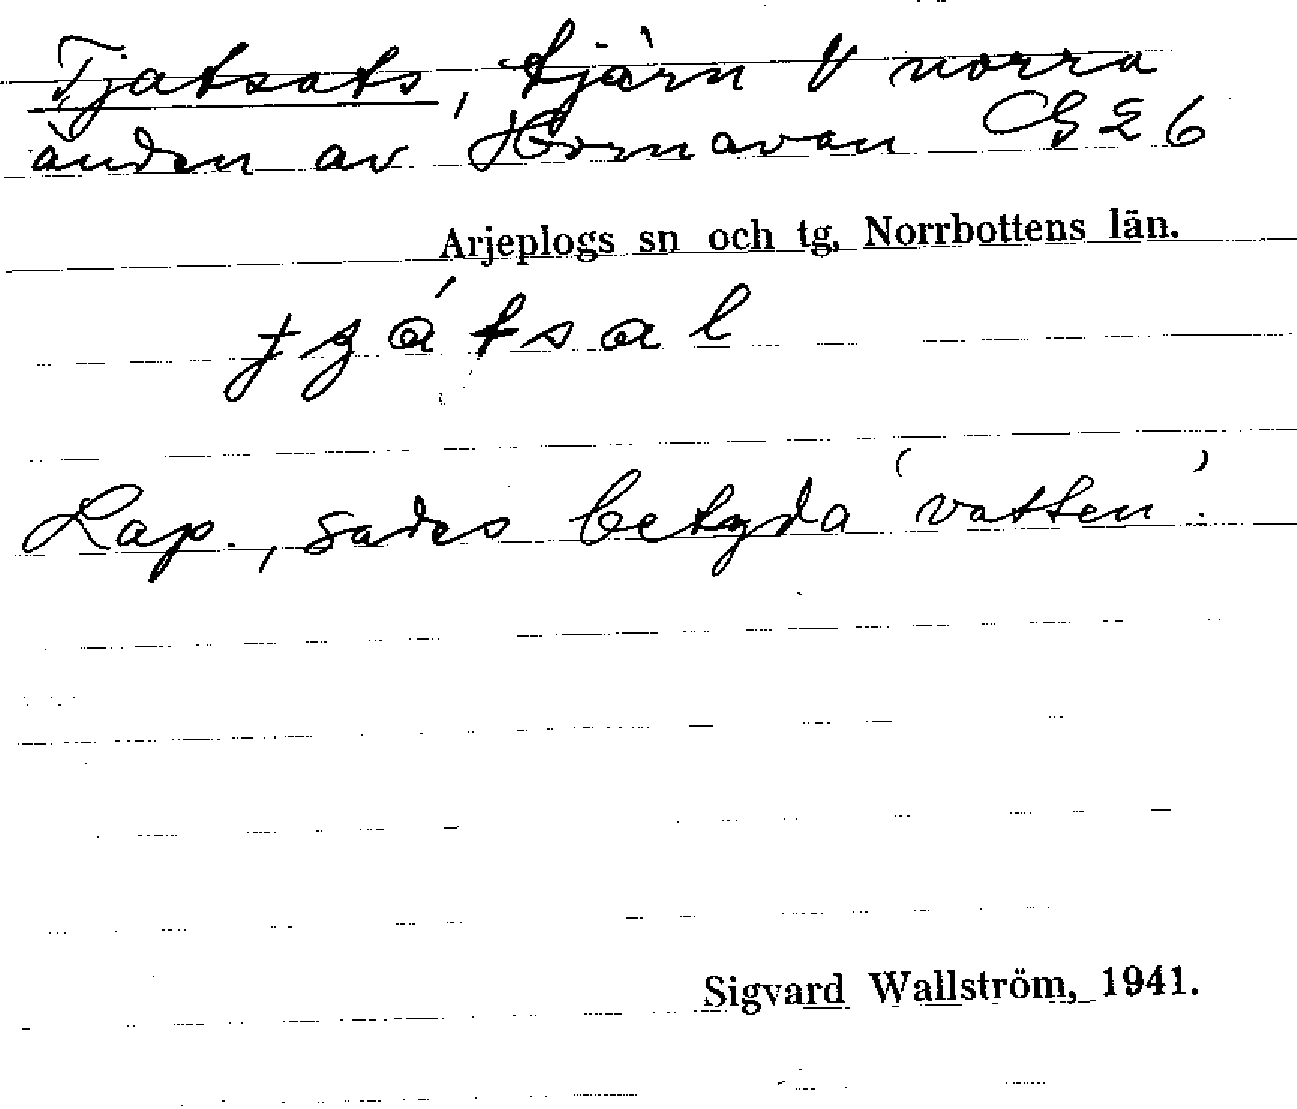 Tjatsats, tjärn V norra
änden av Hornavan G26
Arjeplogs sn och tg, Norrbottens län.
Lap., sades betyda 'vatten'.
Sigvard Wallström, 1941.